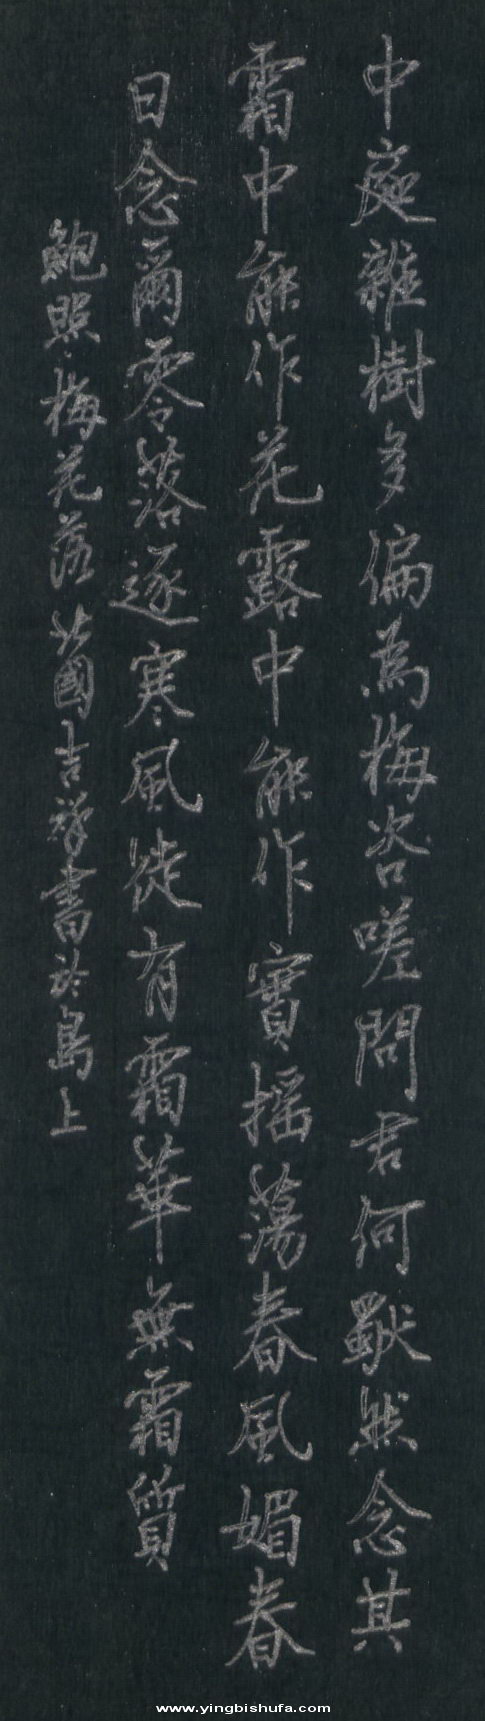 中庭雜樹多偏為梅咨嗟問君何獨然念其
霜中能作花露中能作實摇蕩春風媚春
日念爾零落逐寒風徒有霜華無霜質
鮑照梅花落國吉祥書於島上
www.yingbishufa.com